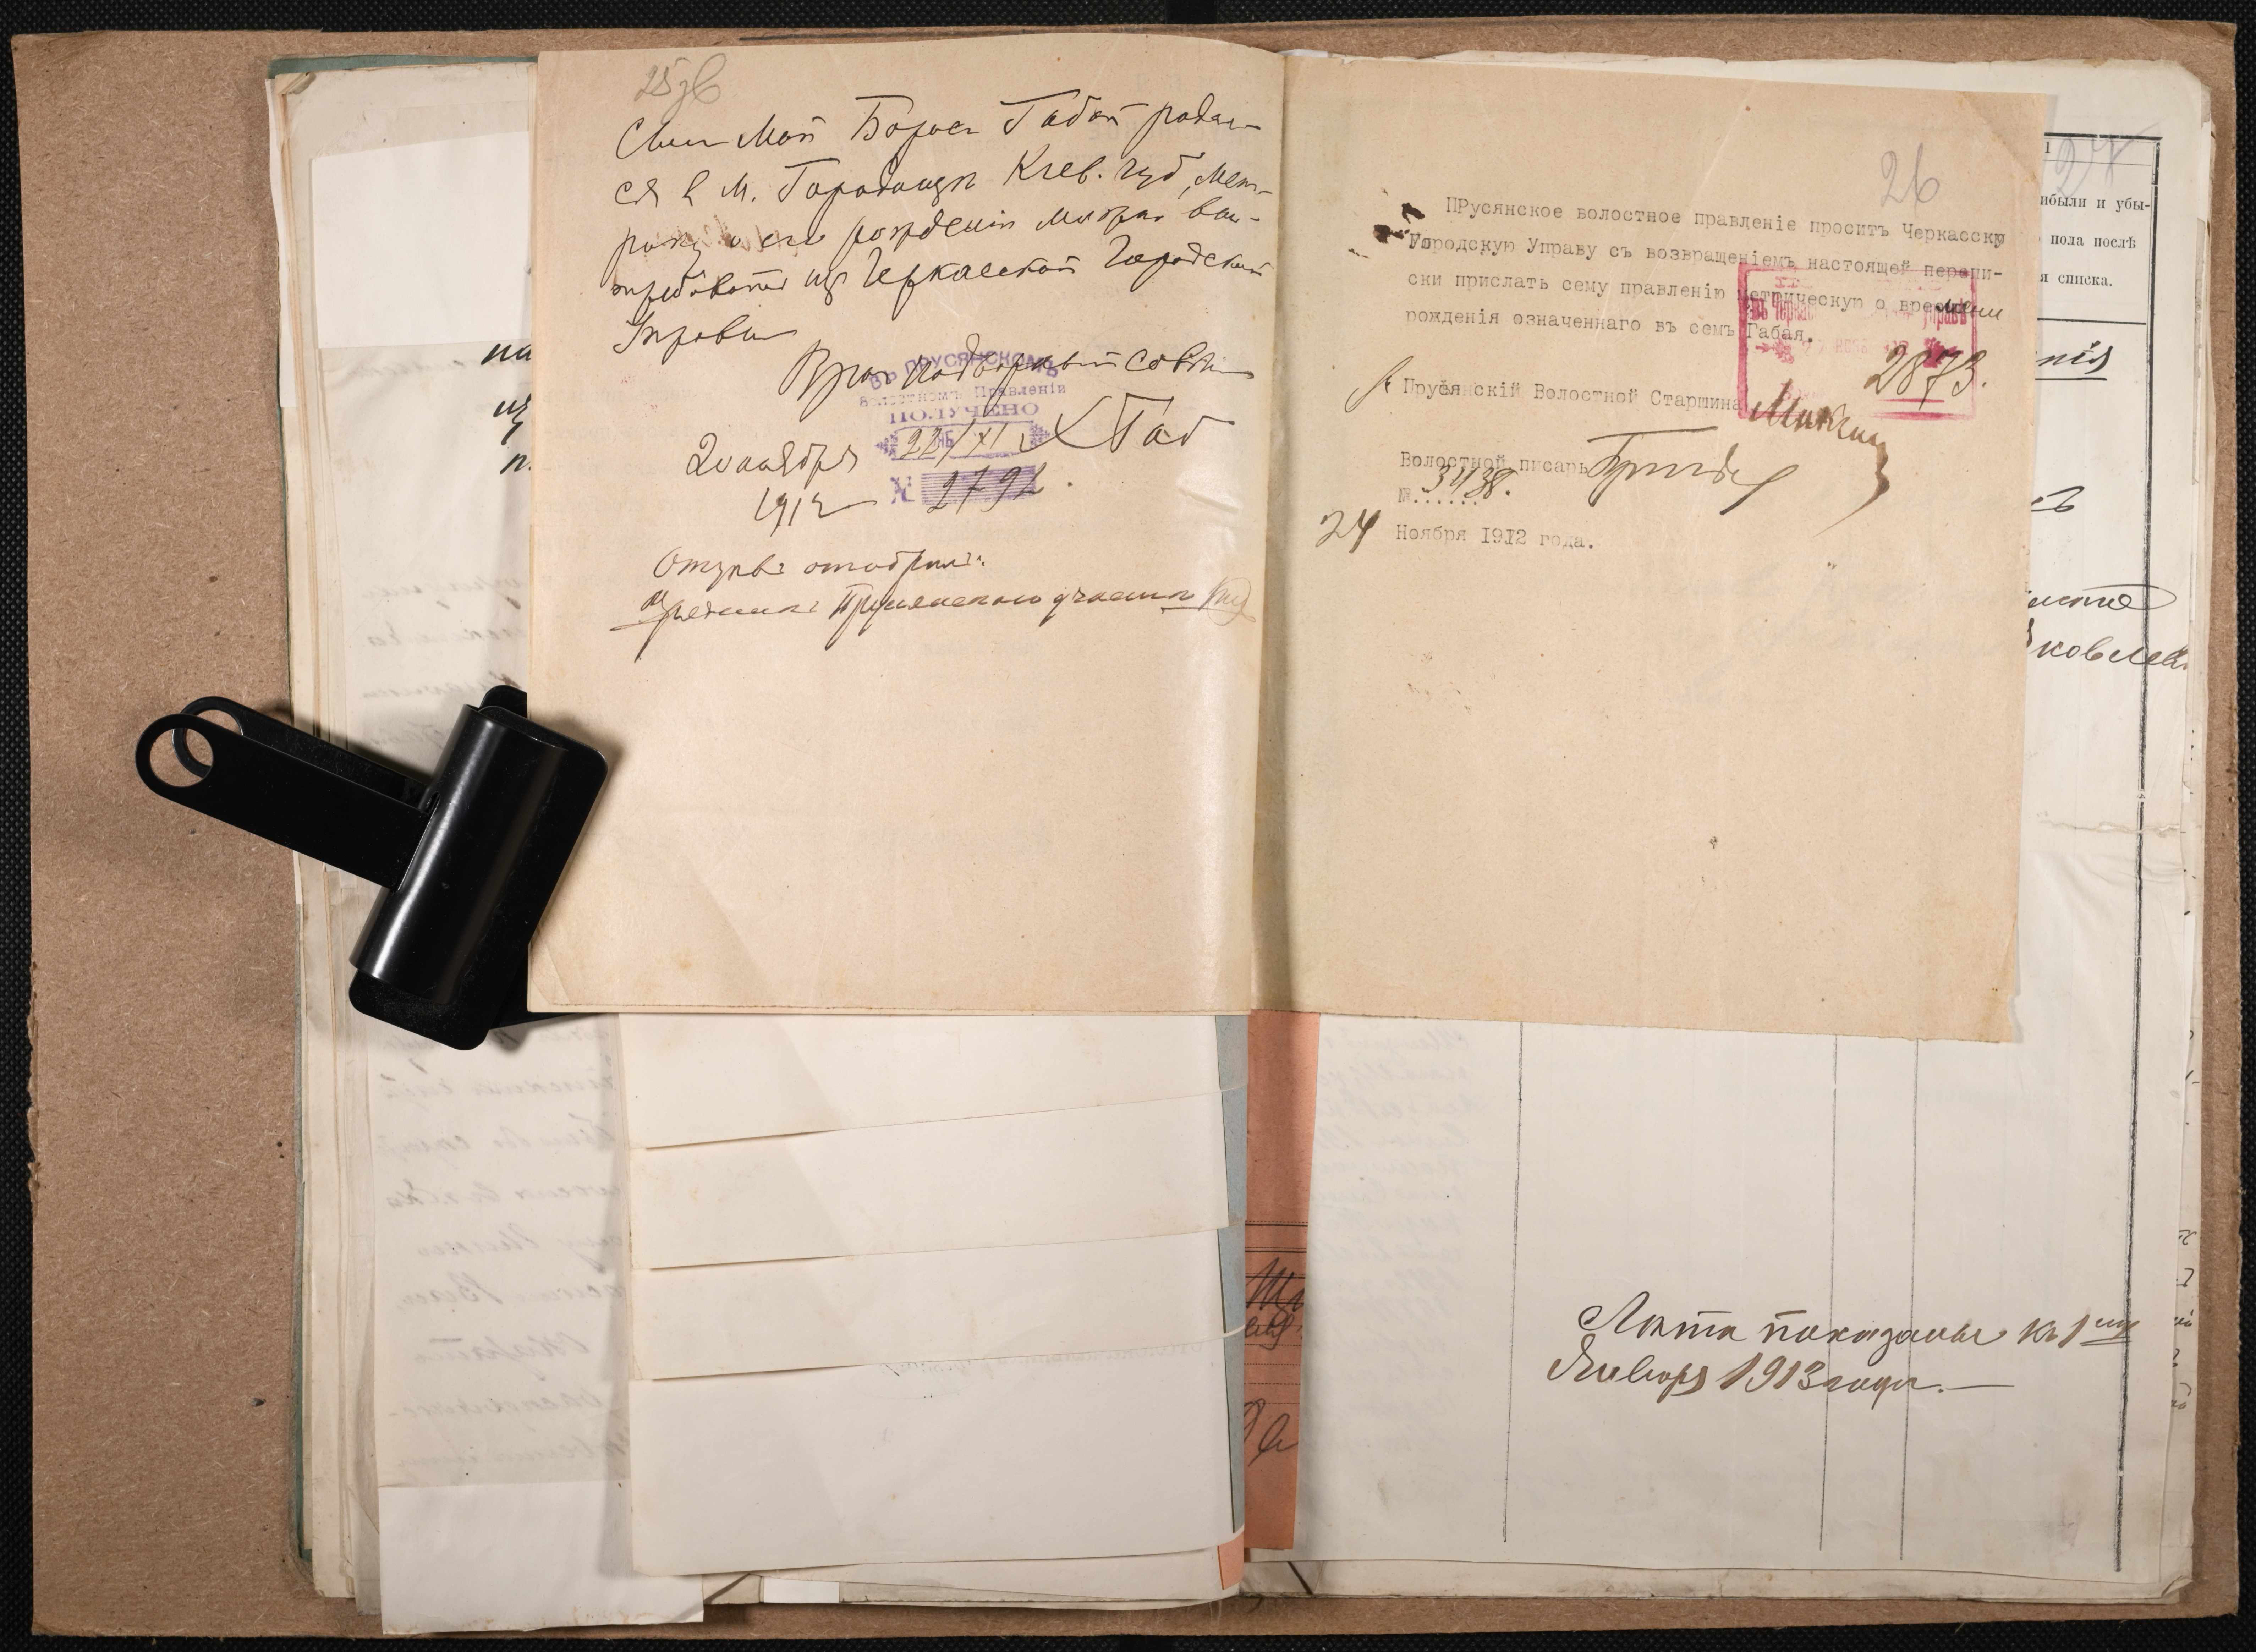 25 зв
Сын Мой Борис Габай родил-
ся в М. Городище Киев. губ, мет-
рику о его рождении можно вы-
требовать из Черкасской Городской
Управы
Врач Надворный Советн
Въ ПРУСЯНСКОМЪ
Волостномъ Правленіи
ПОЛУЧЕНО
22/XI
№ 2792.
Х Габ
20 ноября
1912
Отзывъ отобралъ:
Урядникъ Прусянского участка
26
ПРусянское волостное правленіе проситъ Черкасскую
Городскую Управу съ возвращеніемъ настоящей перепи-
ски прислать сему правленію метрическую о времени
рожденія означеннаго въ семъ Габая.
2873.
Прусянскій Волостной Старшина
Волостной писарь
№ 3438.
24 Ноября 1912 года.
27
ибыли и убы-
пола послѣ
я списка.
нія
ковлев
на
из
п.
Лѣта показаны къ 1му
Января 1913 года.—